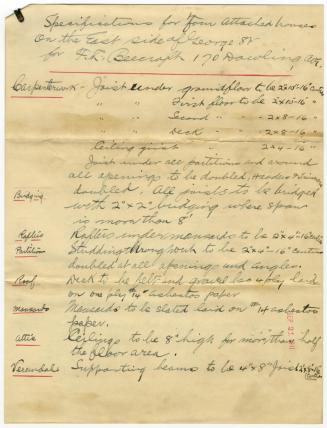 Specifications for four attached houses
on the East side of George St
for F.F. Beecroft 170 Dowling Ave.
Carpenterwork - Joist under groundfloor to be 2x10-16"
" " First floor to be 2x10-16"
" " Second " - 2x8-16
" " Deck " - 2x8-16
Ceiling joist " 2x4-16"
Joist under all partitions and around
all openings to be doubled, Headers &
doubled, All joists to be bridged
Bridging
with 2"x2" bridging where span
is more than 8'
Rafters Rafters under mansards to be 2x4-16" Centres
Partitions Studding throughout to be 2x4"-16" Centres
doubled at all openings and angles.
Roof Deck to be felt and gravel 4 ply laid
on one ply #14 asbestos paper
Mansards Mansards to be slated laid on #14 asbestos
paper.
Attic Ceilings to be 8' high for more than half
the floor area.
Verandah Supporting beams to be 4"x8" Joist 2x8-16